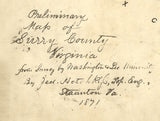 Preliminary
Map of
Surry County
Virginia
from Survey by Washington &
By Jed. Hotchkiss, Top. Eng.
Staunton Va.
1871